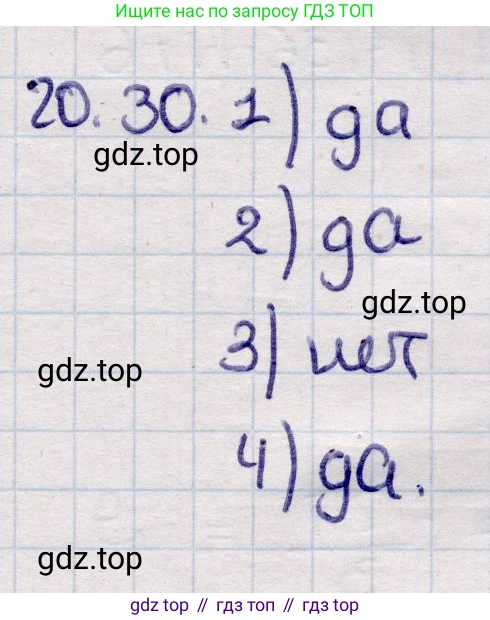 Ищите нас по запросу ГДЗ ТОП
20.30. 1) да
gdz.top
2) да
gdz.top
3) нет
gdz.top
4) да.
gdz.top
gdz top // гдз топ // гдз top